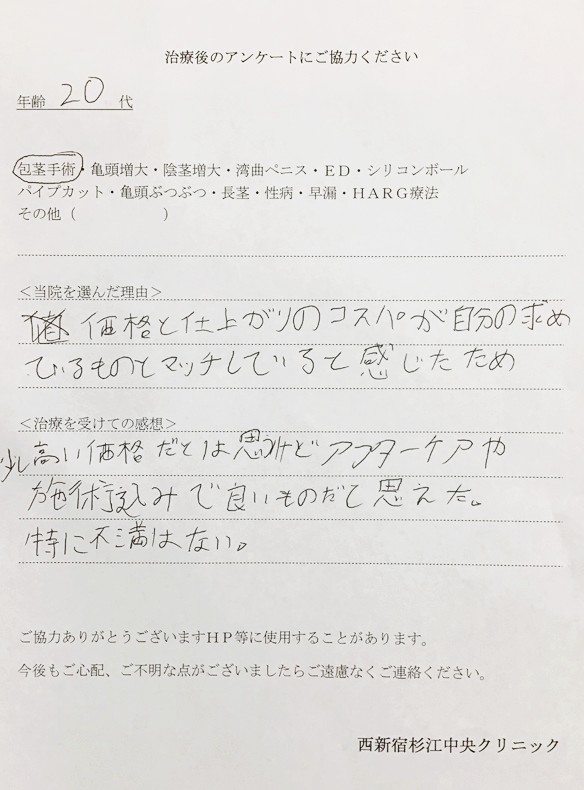 治療後のアンケートにご協力ください
年齢 20 代
包茎手術・亀頭増大・陰茎増大・湾曲ペニス・ED・シリコンボール
パイプカット・亀頭ぶつぶつ・長茎・性病・早漏・HARG療法
その他（　　　　　）
＜当院を選んだ理由＞
価格と仕上がりのコスパが自分の求め
ているものとマッチしていると感じたため
＜治療を受けての感想＞
少し高い価格だとは思うけどアフターケアや
施術込みで良いものだと思えた。
特に不満はない。
ご協力ありがとうございますHP等に使用することがあります。
今後もご心配、ご不明な点がございましたらご遠慮なくご連絡ください。
西新宿杉江中央クリニック